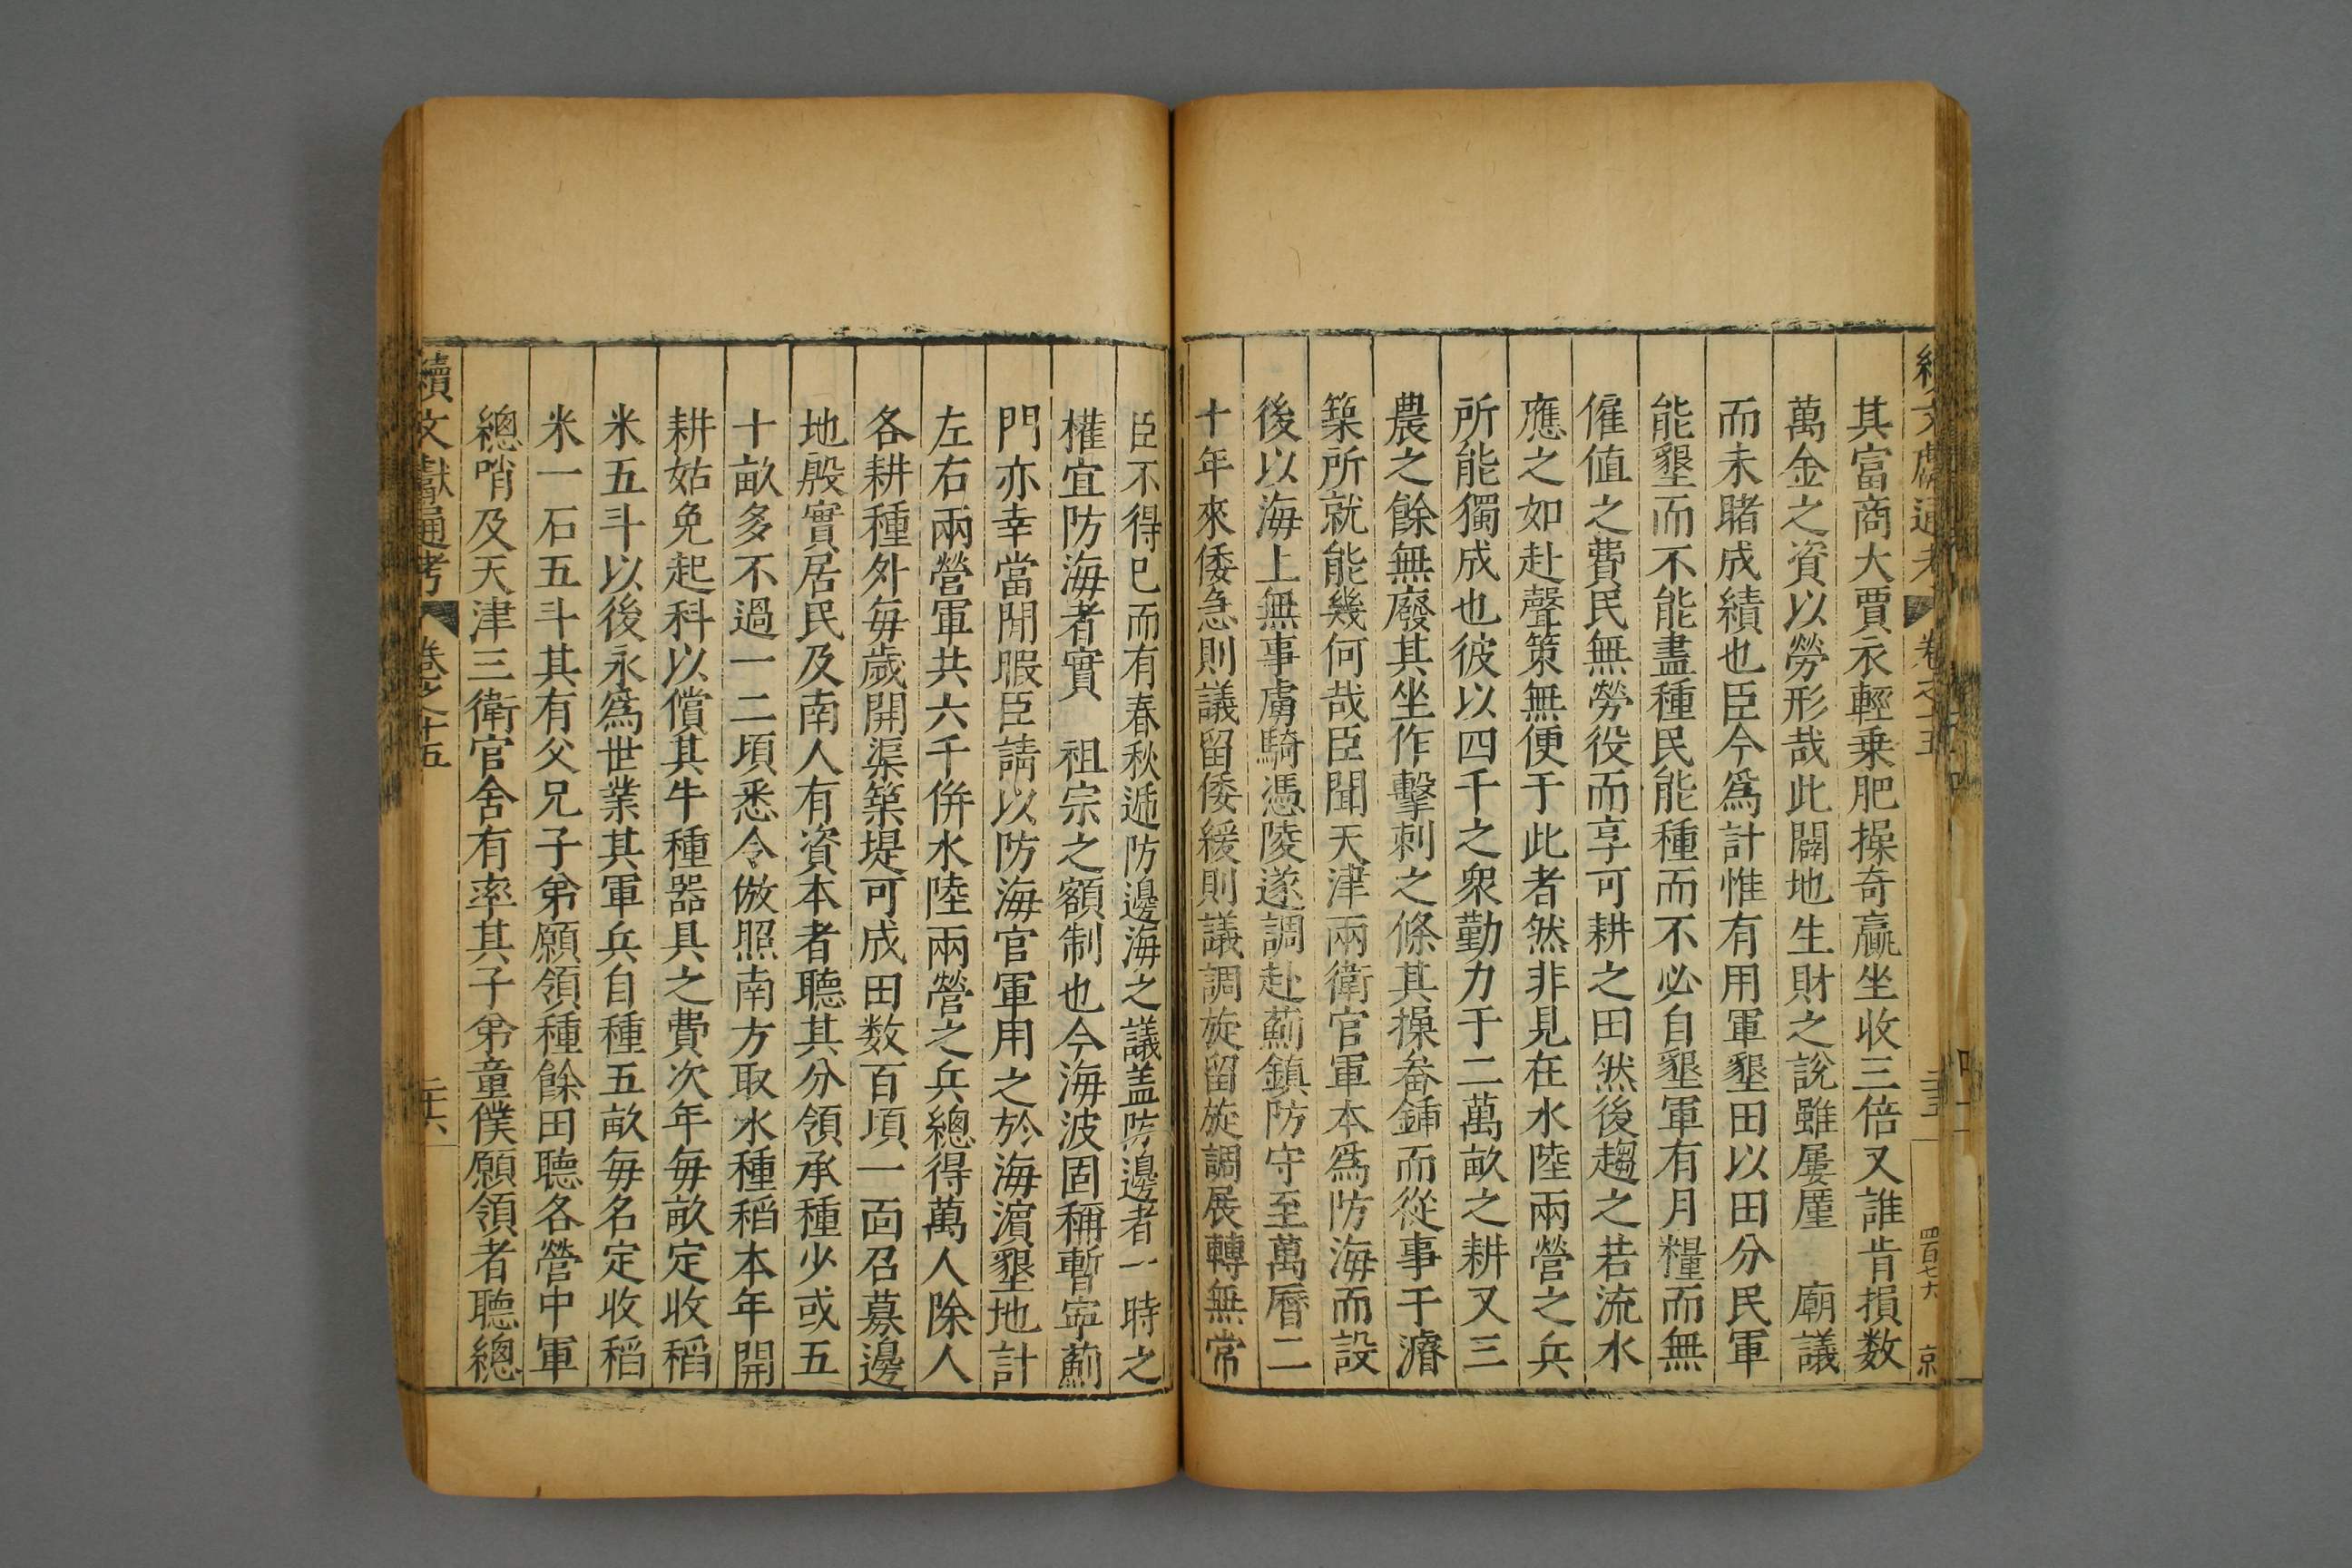 續文獻通考 卷之十五 三五 四百七六 京
其富商大賈衣輕乗肥操奇贏坐收三倍又誰肯損数
萬金之資以勞形哉此闢地生財之說雖屢廑 廟議
而未睹成績也臣今爲計惟有用軍墾田以田分民軍
能墾而不能盡種民能種而不必自墾軍有月糧而無
僱値之費民無勞役而享可耕之田然後趨之若流水
應之如赴聲策無便于此者然非見在水陸兩營之兵
所能獨成也彼以四千之衆勤力于二萬畝之耕又三
農之餘無廢其坐作擊刺之條其操畚鍤而從事于濬
築所就能幾何哉臣聞天津兩衛官軍本爲防海而設
後以海上無事虜騎憑陵遂調赴薊鎮防守至萬曆二
十年來倭急則議留倭緩則議調旋留旋調展轉無常
臣不得已而有春秋逓防邊海之議盖防邊者一時之
權宜防海者實 祖宗之額制也今海波固稱暫寧薊
門亦幸當閒暇臣請以防海官軍用之於海濵墾地計
左右兩營軍共六千併水陸兩營之兵總得萬人除人
各耕種外毎歲開渠築堤可成田数百頃一面召募邊
地殷實居民及南人有資本者聽其分領承種少或五
十畝多不過一二頃悉令倣照南方取水種稻本年開
耕姑免起科以償其牛種器具之費次年毎畝定收稻
米五斗以後永爲世業其軍兵自種五畝毎名定收稻
米一石五斗其有父兄子弟願領種餘田聽各營中軍
總哨及天津三衛官舍有率其子弟童僕願領者聽總
續文獻通考 卷之十五 三六